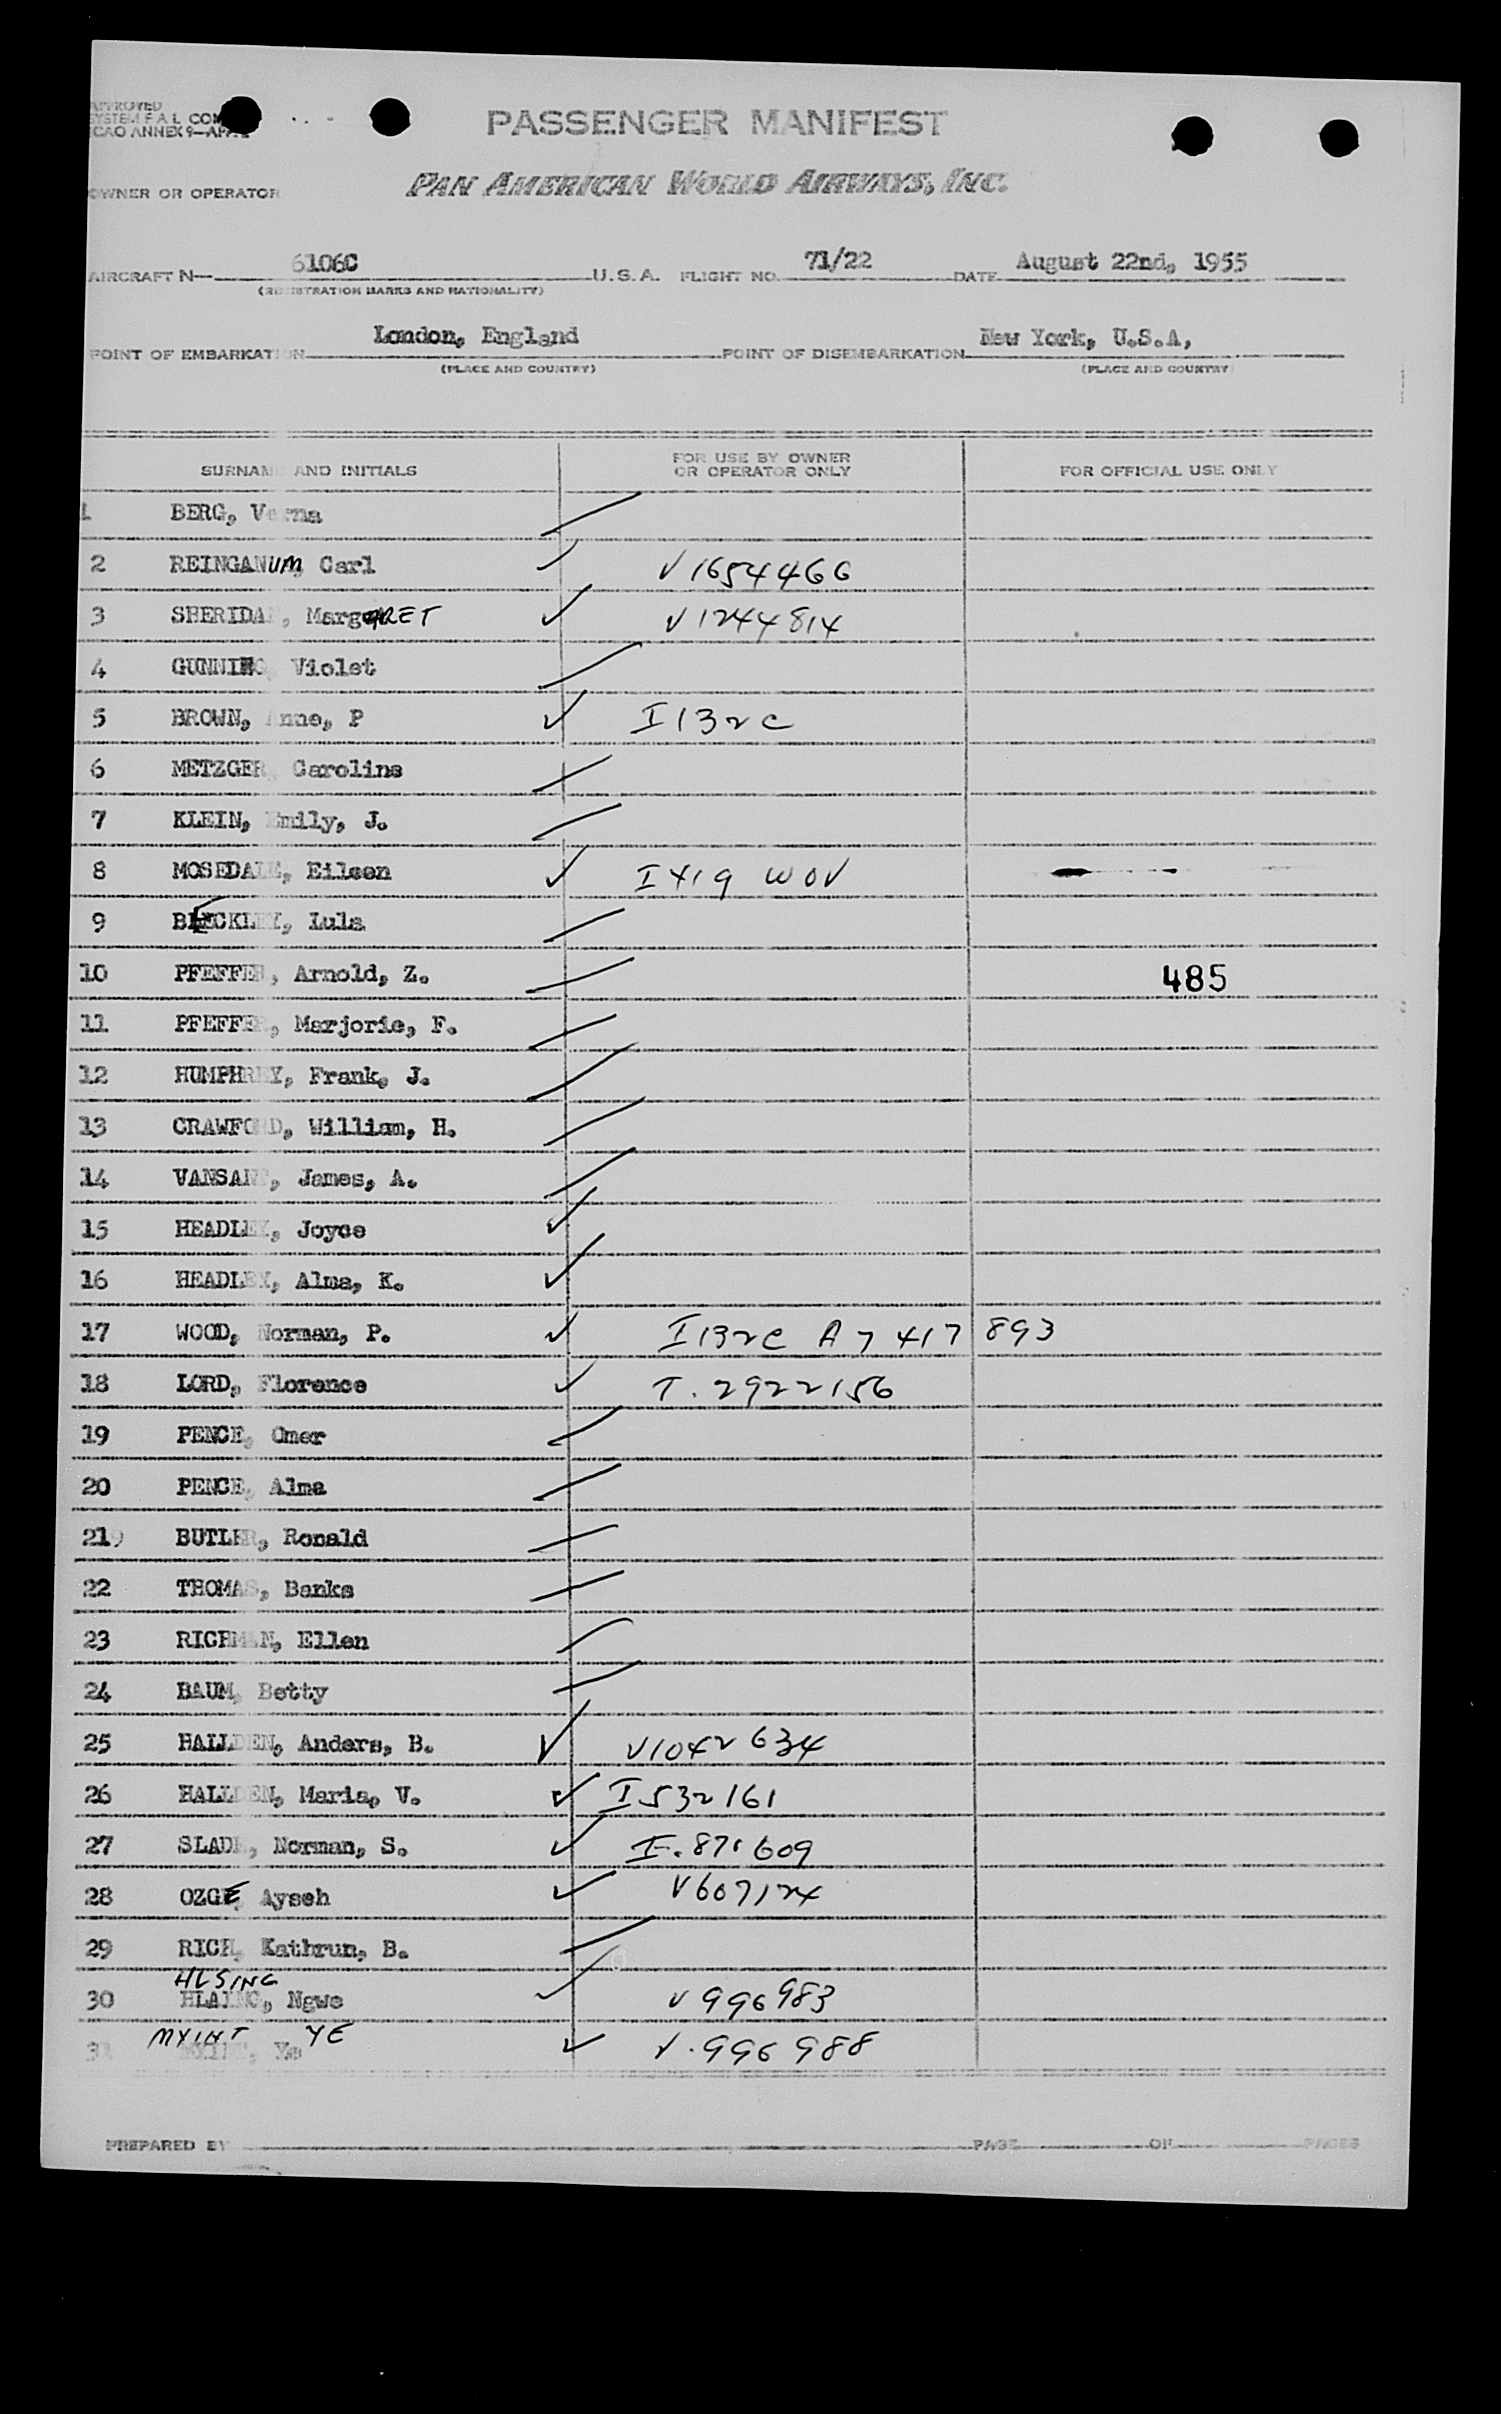 APPROVED
SYSTEM F A L COM
ICAO ANNEX 9—
PASSENGER MANIFEST
OWNER OR OPERATOR PAN AMERICAN WORLD AIRWAYS, INC.
AIRCRAFT N— 6106C U.S.A. FLIGHT NO. 71/22 DATE August 22nd, 1955
(REGISTRATION MARKS AND NATIONALITY)
POINT OF EMBARKATION London, England POINT OF DISEMBARKATION New York, U.S.A,
(PLACE AND COUNTRY) (PLACE AND COUNTRY)
SURNAME AND INITIALS FOR USE BY OWNER OR OPERATOR ONLY FOR OFFICIAL USE ONLY
1 BERG, Verna
2 REINGANUM, Carl V1654466
3 SHERIDAN, MargARET V1244814
4 GUNNING, Violet
5 BROWN, Anne, P I132C
6 METZGER, Caroline
7 KLEIN, Emily, J.
8 MOSEDALE, Eileen I419 WOV
9 BECKLEY, Lula
10 PFEFFER, Arnold, Z. 485
11 PFEFFER, Marjorie, F.
12 HUMPHREY, Frank, J.
13 CRAWFORD, William, H.
14 VANSANT, James, A.
15 HEADLEY, Joyce
16 HEADLEY, Alma, K.
17 WOOD, Norman, P. I132C A7 417 893
18 LORD, Florence T. 2922156
19 PENCE, Omer
20 PENCE, Alma
21 BUTLER, Ronald
22 THOMAS, Banks
23 RICHMAN, Ellen
24 BAUM, Betty
25 HALLDEN, Anders, B. V1042634
26 HALLDEN, Maria, V. I532161
27 SLADE, Norman, S. I.871609
28 OZGE, Ayseh V607124
29 RICH, Kathrun, B.
HLSING
30 HLAING, Ngwe V996983
MYINT YE
31 Ye V.996988
PREPARED BY PAGE OF PAGES